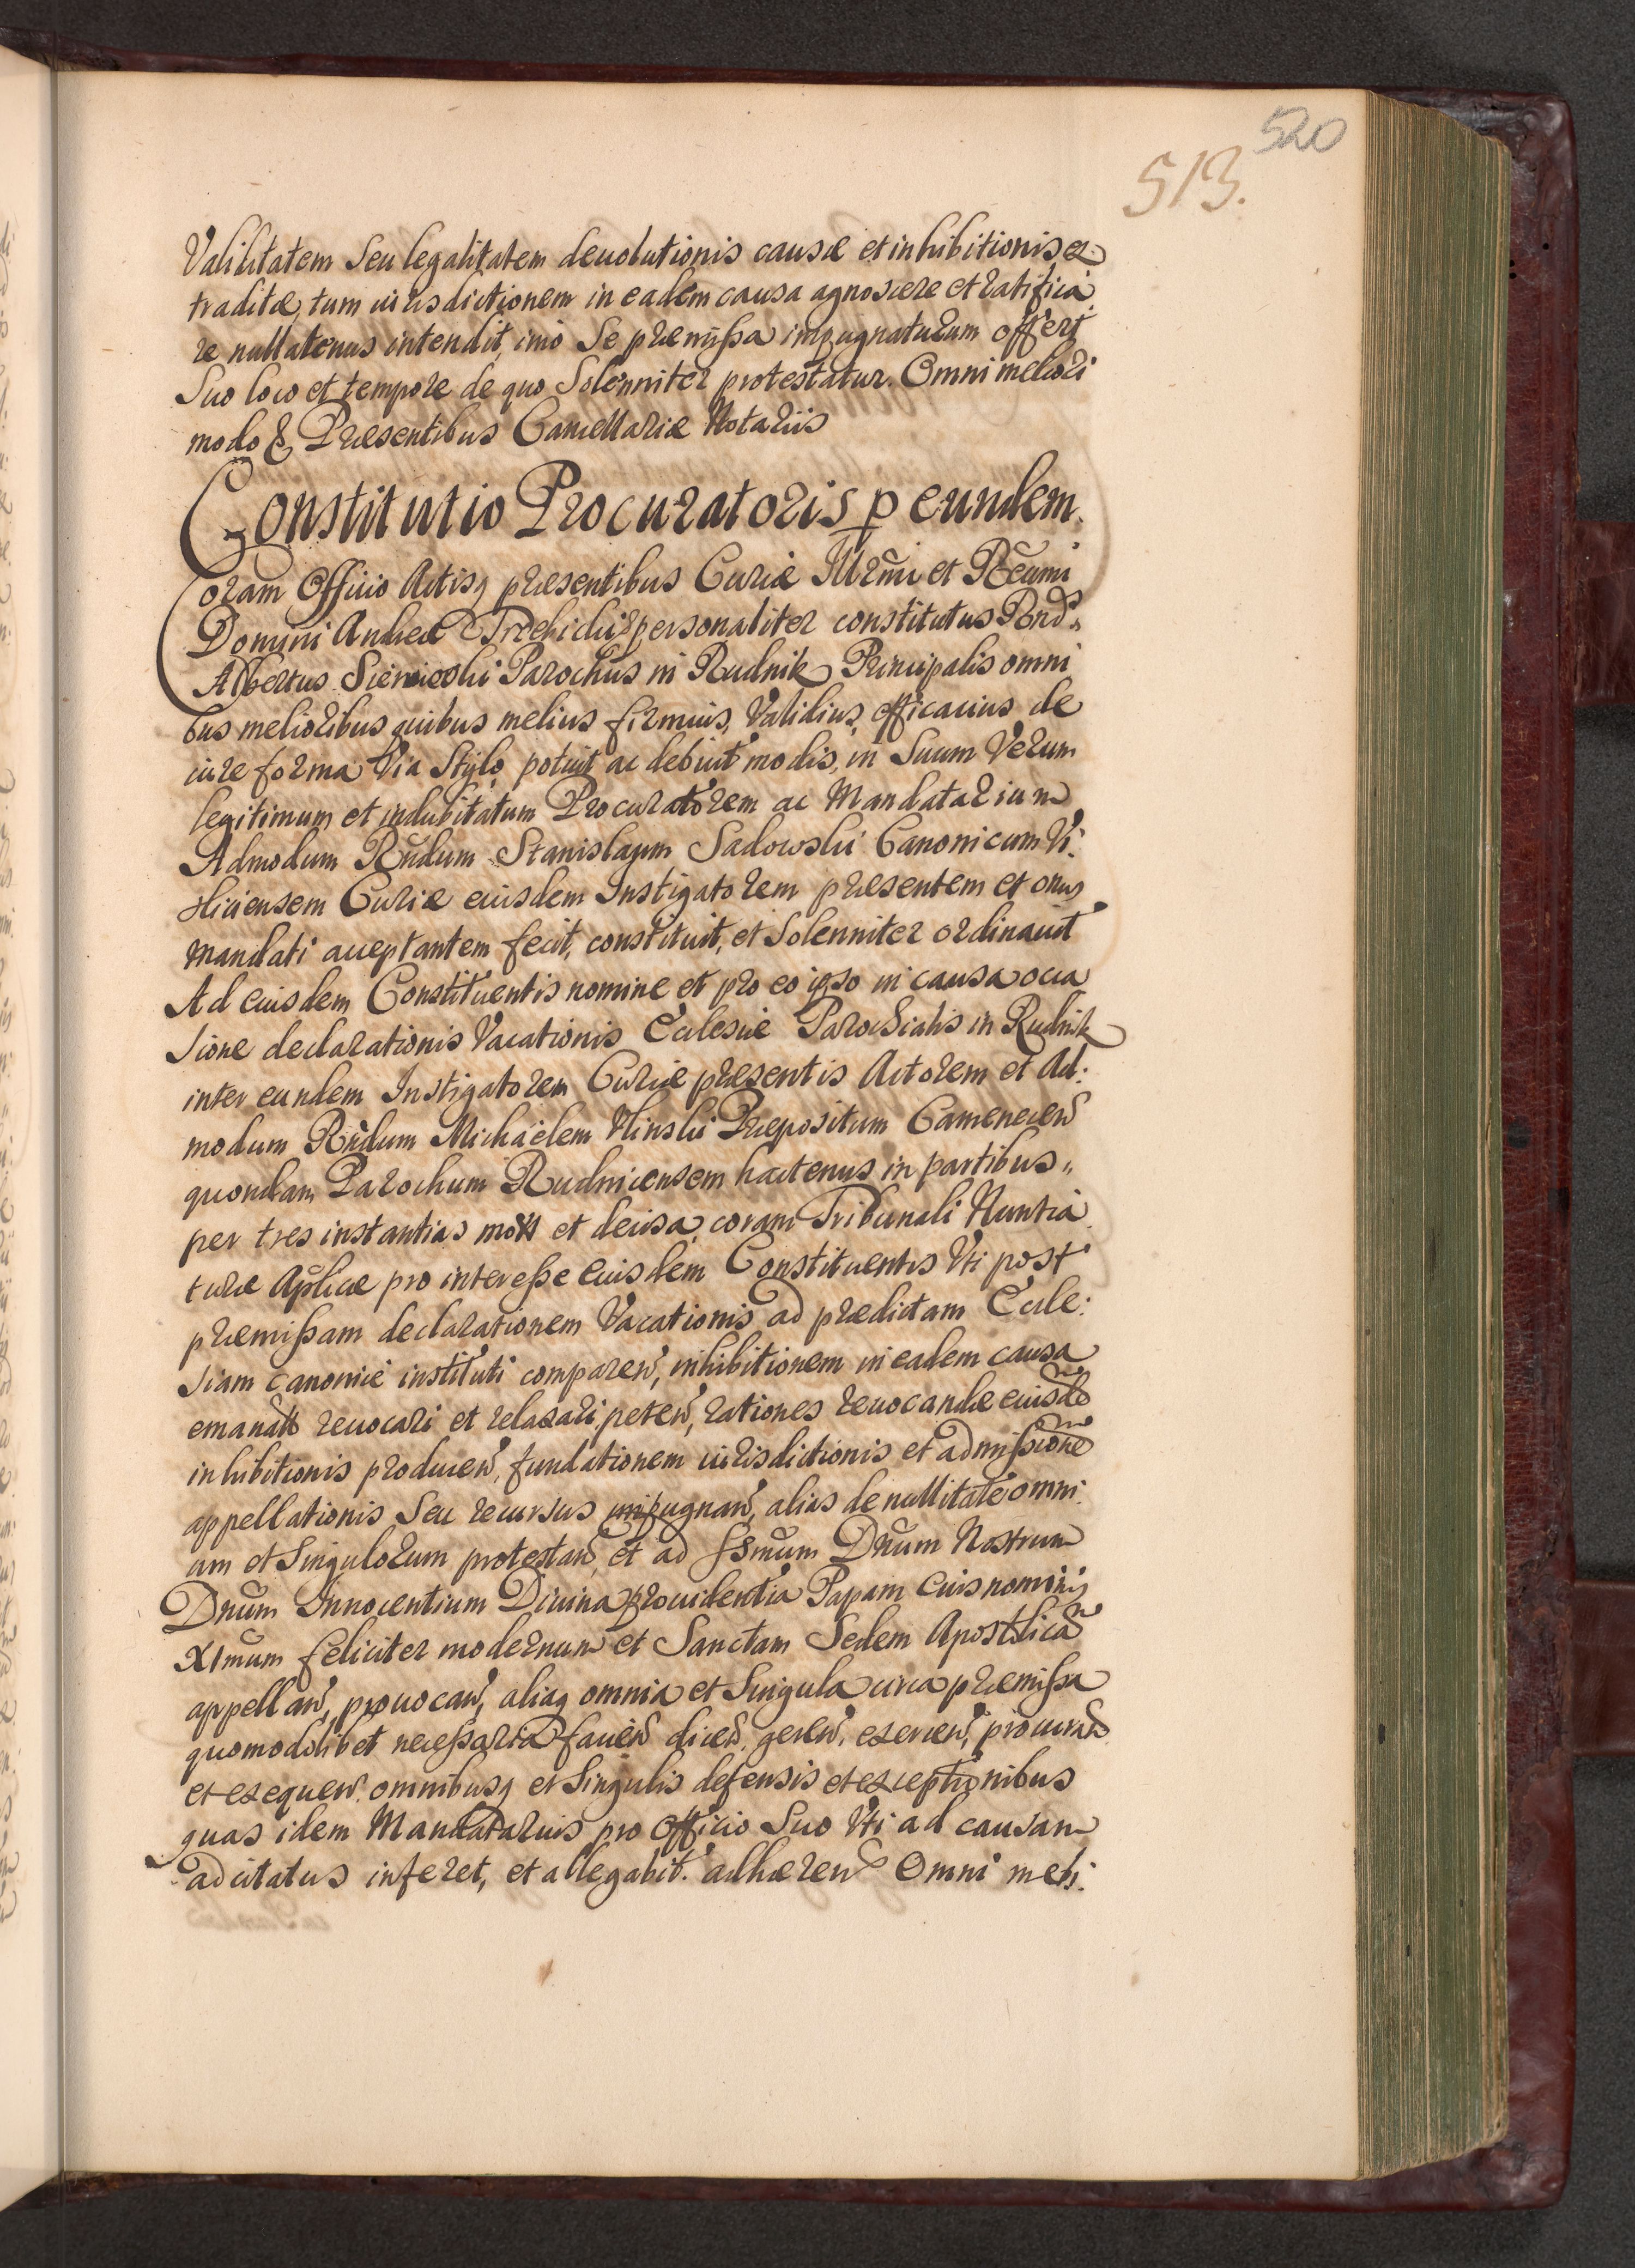 520
513.
Validitatem Seu legalitatem deuolutionis causæ et inhibitionis ex
traditæ, tum iurisdictionem in eadem causa agnoscere et ratifica
re nullatenus intendit, imò Se præmissa impugnaturum offert
Suo loco et tempore de quo Solenniter protestatur. Omni meliori
modo & Præsentibus Cancellariæ Notariis
Constitutio Procuratoris p eundem.
Coram Officio Actisq præsentibus Curiæ Illrmi et Reumi
Domini Andreæ Trzebicki personaliter constitutus Rnds
Albertus Sieniecki Parochus in Rudnik Principalis omni
bus melioribus quibus melius firmius, Validius, efficacius de
iure forma Via Stylo potuit ac debuit modis, in Suum Verum
legitimum et indubitatum Procuratorem ac Mandatarium
Admodum Rndum Stanislaum Sadowski Canonicum Vi:
sliciensem Curiæ eiusdem Instigatorem præsentem et onus
mandati acceptantem fecit, constituit, et Solenniter ordinauit
Ad eiusdem Constituentis nomine et pro eo ipso in causa occa
sione declarationis Vacationis Ecclesiæ Parochialis in Rudnik
inter eundem Instigatorem Curiæ præsentis Actorem et Ad:
modum Rndum Michaelem Klinski Præpositum Camenecen
quondam Parochum Rudnicensem hactenus in partibus
per tres instantias mota et decisa, coram Tribunali Nuntia
turæ Aplicæ pro interesse eiusdem Constituentis Vti post
præmissam declarationem Vacationis ad prædictam Eccle:
siam canonicè instituti comparen, inhibitionem in eadem causa
emanatã reuocari et relaxari peten, rationes reuocandæ eiusdē
inhibitionis producen, fundationem iurisdictionis et admissionē
appellationis Seu recursus impugnan, alias de nullitate omni
um et Singulorum protestan, et ad Ssmum Dnum Nostrum
Dnum Innocentium Diuina prouidentia Papam eius nominis
XImum feliciter modernum et Sanctam Sedem Apostolicã
appellan, prouocan, aliaq omnia et Singula circa præmissa
quomodolibet necessaria facien dicen, geren, exercen, procuran
et exequen. omnibusq et Singulis defensis et exceptionibus
quas idem Mandatarius pro Officio Suo Vti ad causam
adcitatus inferet, et allegabit. adhæren Omni meli: